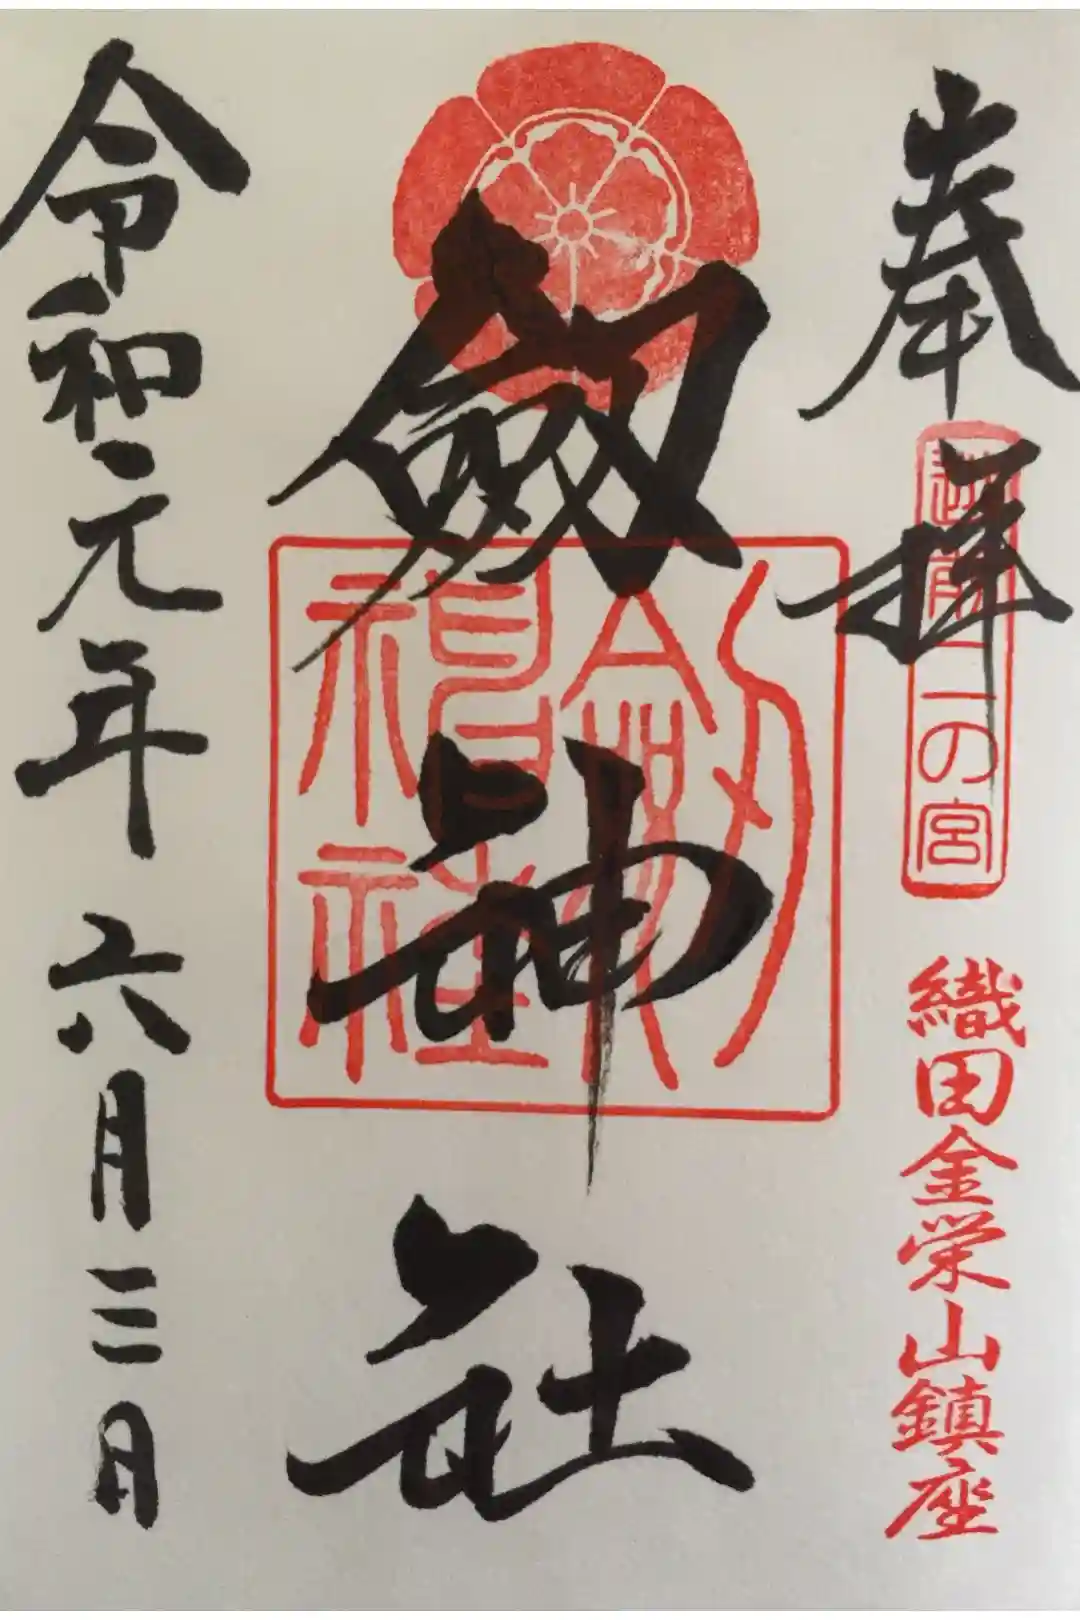 奉拝
越前二の宮
織田金栄山鎮座
劔神社
劔神社
令和元年 六月三日